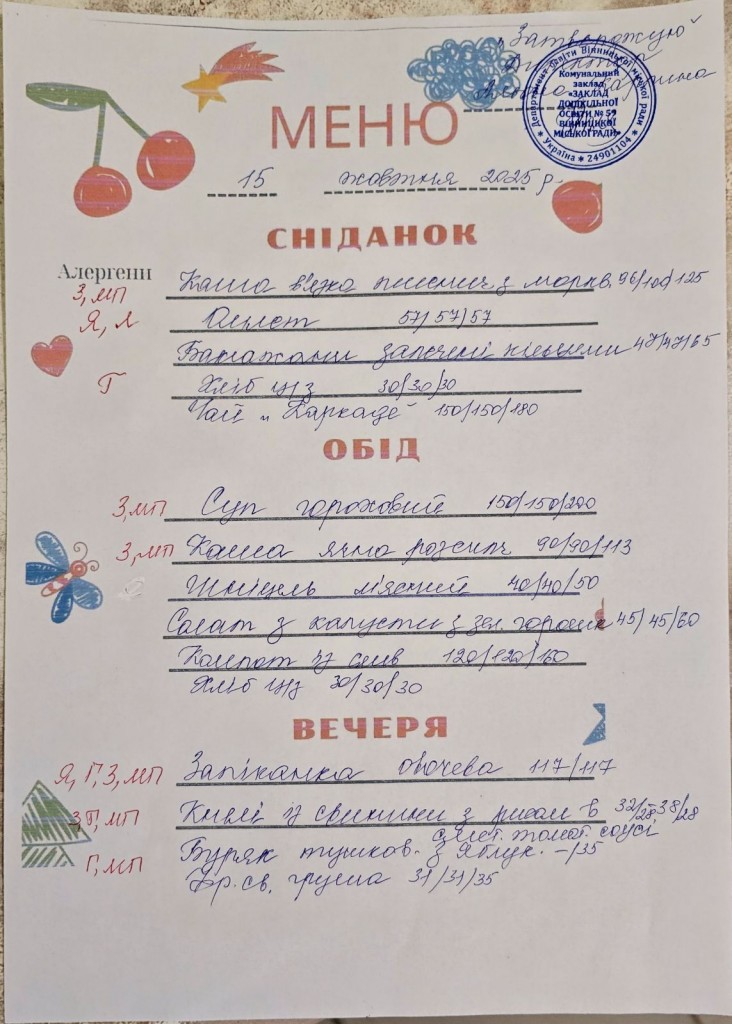 „Затверджую"
Департамент освіти Вінницької міської ради
Комунальний
заклад
«ЗАКЛАД
ДОШКІЛЬНОЇ
ОСВІТИ № 59
ВІННИЦЬКОЇ
МІСЬКОЇ РАДИ»
* Україна * 24901104 *
МЕНЮ
15 жовтня 2025 р.
СНІДАНОК
Алергени
З, МП Каша в'язка пшенич з моркв. 96/100/125
Я, Л Омлет 57/57/57
Баклажани запечені кільцями 47/47/65
Г Хліб ц/з 30/30/30
Чай „Каркаде" 150/150/180
ОБІД
З, МП Суп гороховий 150/150/200
З, МП Каша ячна розсипч 90/90/113
Шніцель м'ясний 40/40/50
Салат з капусти з зел. горошк 45/45/60
Компот із слив 120/120/160
Хліб ц/з 30/30/30
ВЕЧЕРЯ
Я, Г, З, МП Запіканка овочева 117/117
З, Г, МП Кнелі із свинини з рисом в 32/28, 38/28
смет. томат. соусі
Г, МП Буряк тушков. з яблук. –/35
Фр. св. груша 31/31/35